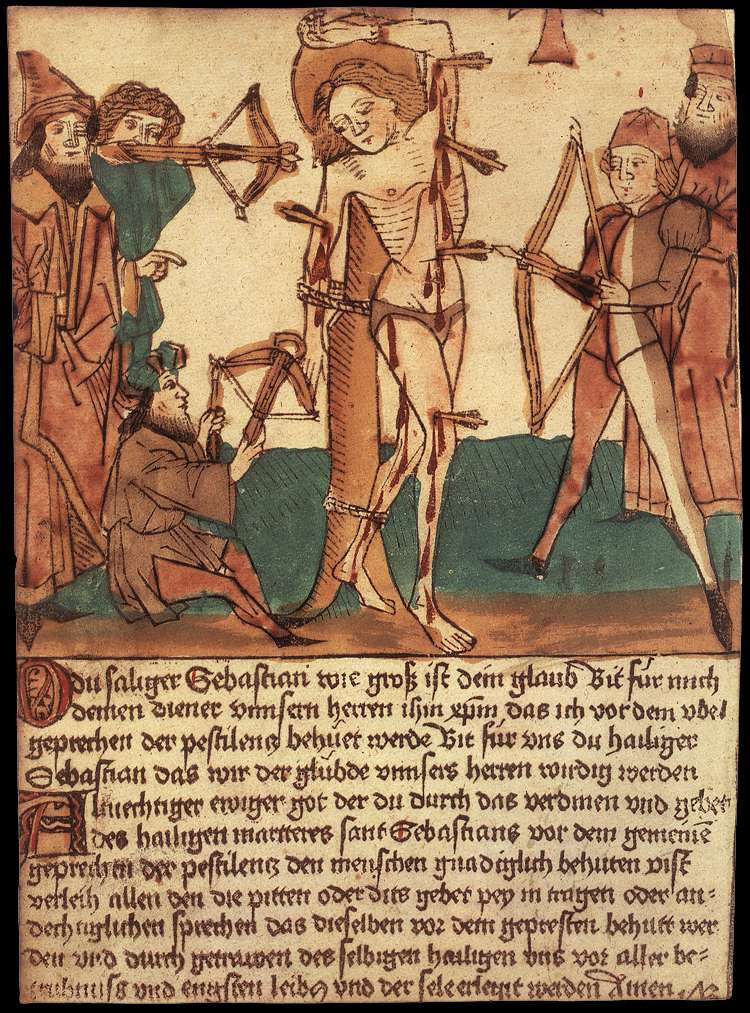 O du saliger Sebastian wie groß ist dein glaub Bit für mich
deinen diener vnnsern herren ihm xpm das ich vor dem vbel
geprechen der pestilencz behüet werde Bit für vns du hailiger
Sebastian das wir der glübde vnnsers herren wirdig werden
Almechtiger ewiger got der du durch das verdinen vnd gebet
des hailigen martteres sant Sebastians vor dem gemeinē
geprechen der pestilencz den menschen gnadiglich behuten pist
verleih allen den die pitten oder dits gebet pey in tragen oder an-
dechtiglichen sprechen das dieselben vor dem gepresten behütt wer
den vnd durch getrawen des selbigen hailigen vns vor aller be-
trubnuss vnd engsten leibs vnd der sele erlegit werden Amen